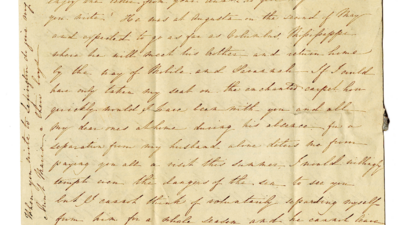 you write. He was at Augusta on the second of May
and expected to go as far as Columbus Mississippi
where he will meet his brother and return home
by the way of Mobile and Savannah. If I could
have only taken my seat on the enchanted carpet how
quickly would I have been with you and all
my dear ones at home during his absence, for a
separation from my husband alone deters me from
paying you all a visit this summer. I would willingly
tempt even the dangers of the sea to see you
but I cannot think of voluntarily separating myself
from him for a whole season and he cannot leave
When you write to